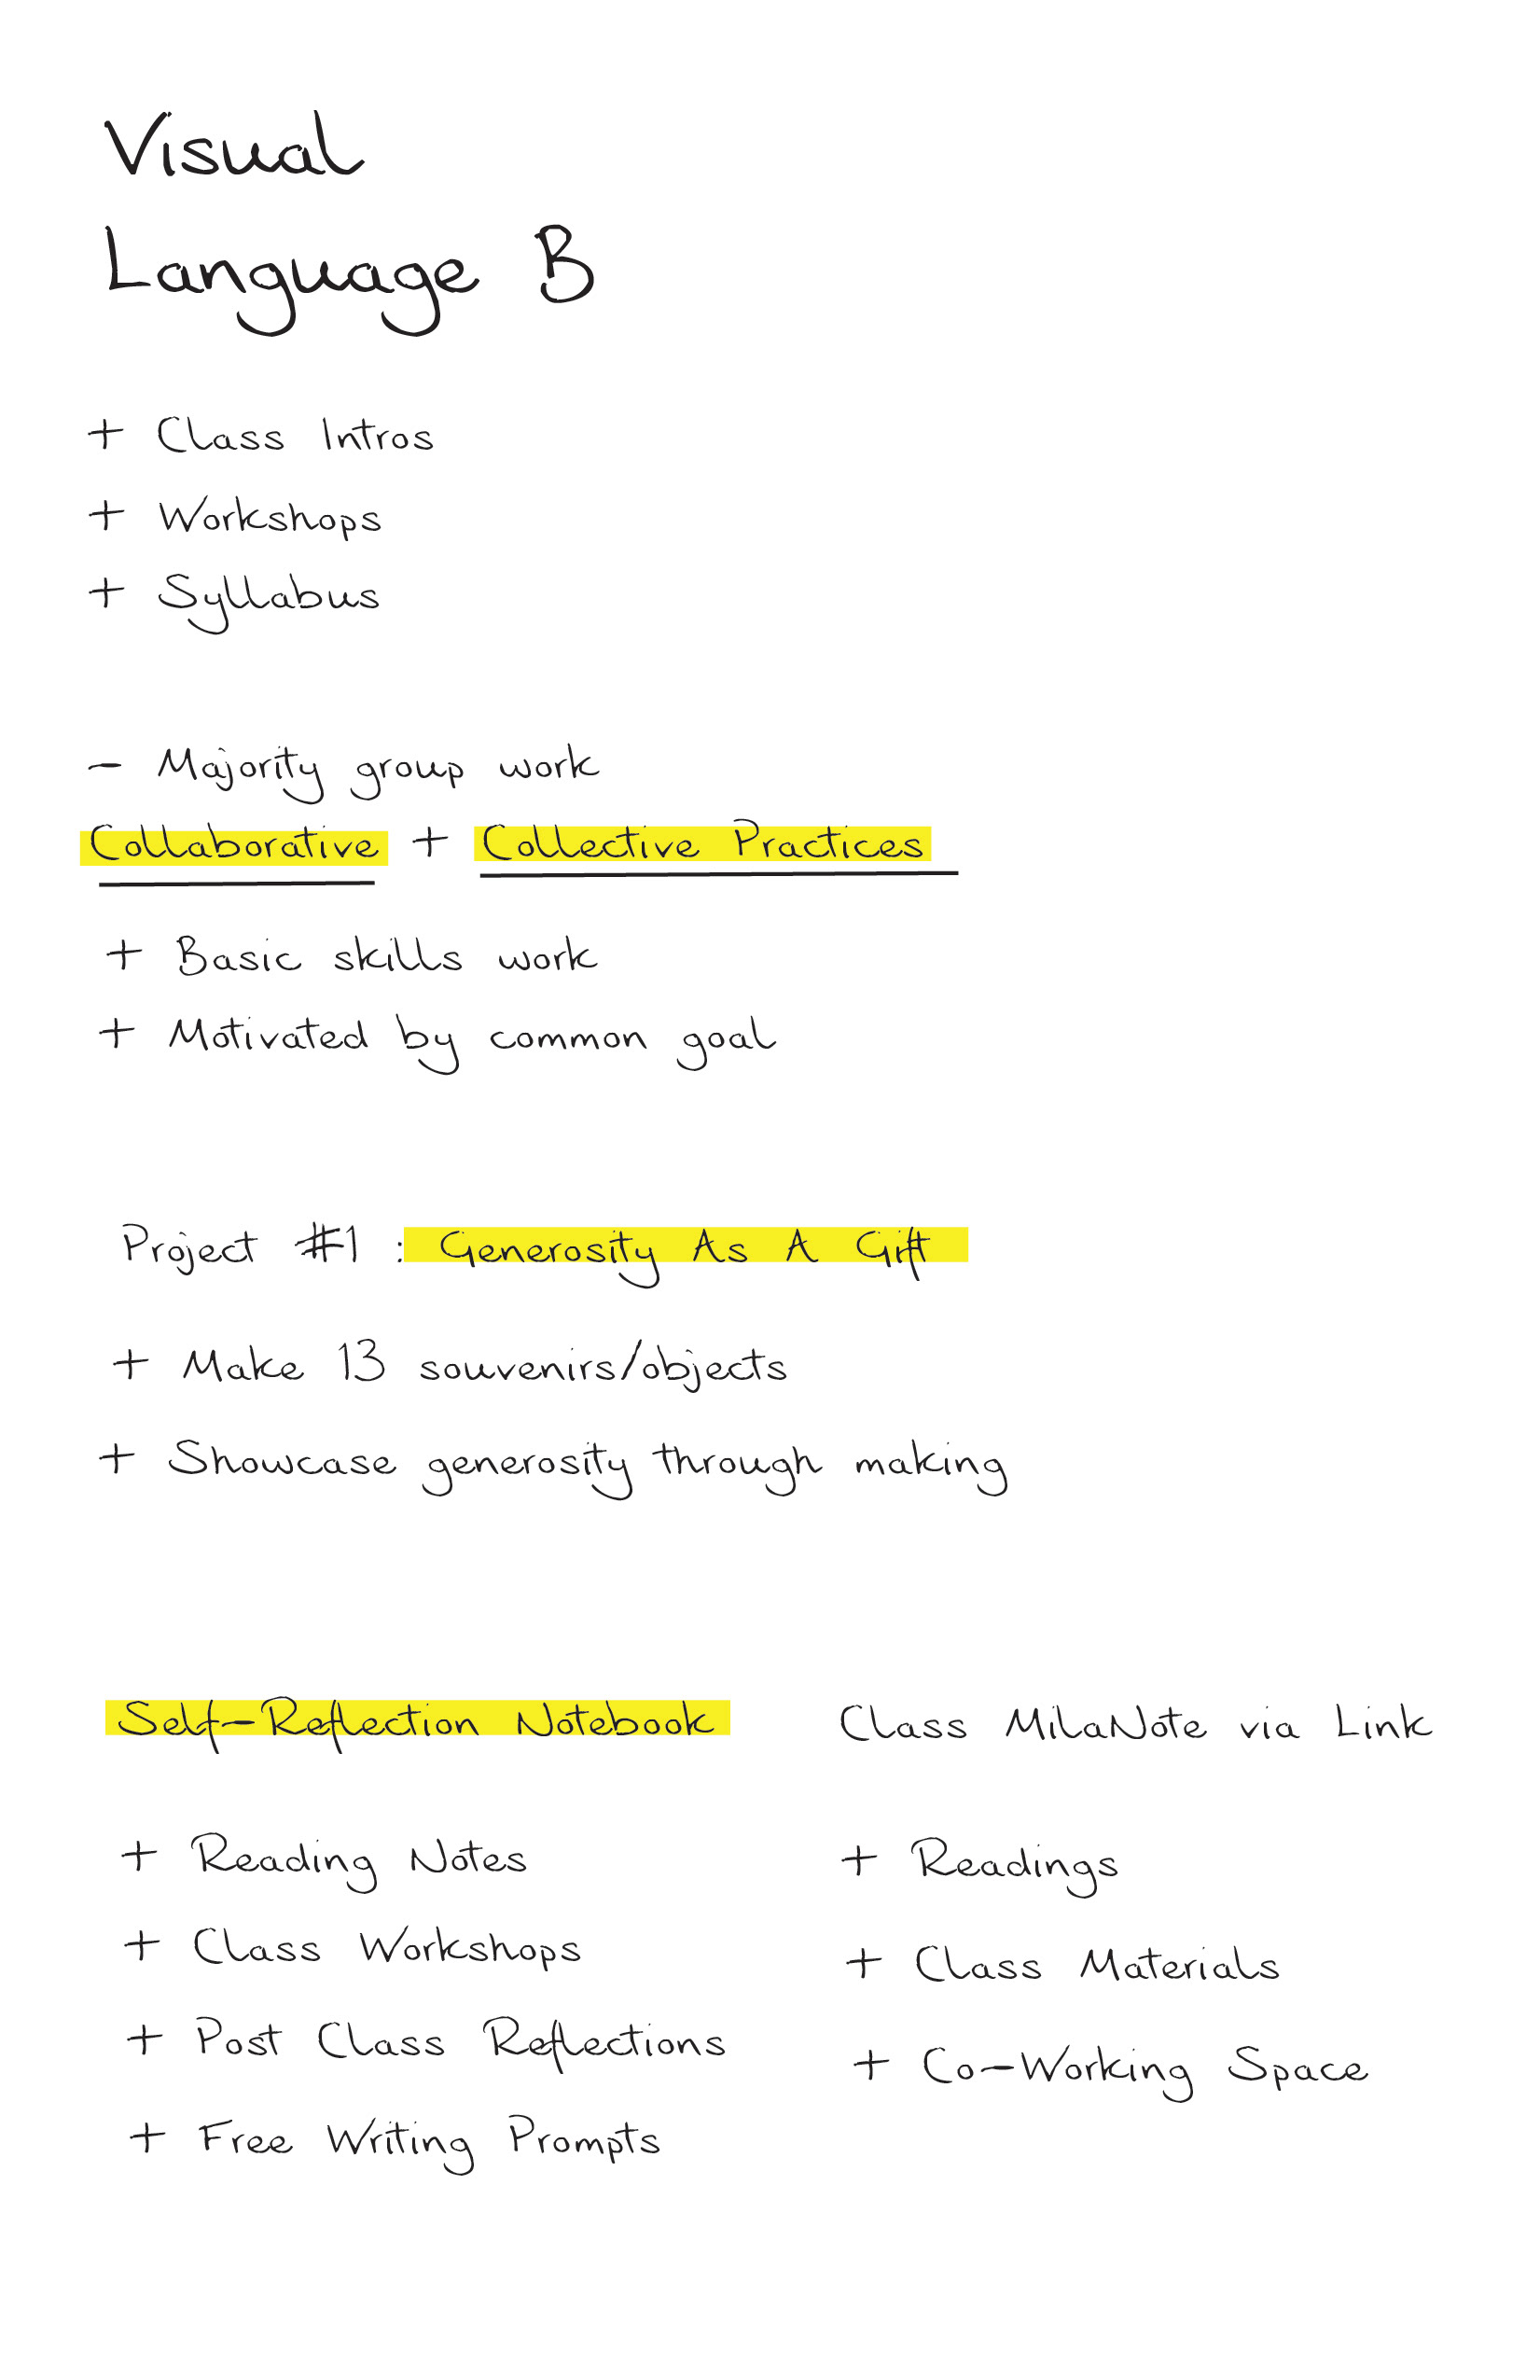 Visual
Language B
+ Class Intros
+ Workshops
+ Syllabus
- Majority group work
Collaborative + Collective Practices
+ Basic skills work
+ Motivated by common goal
Project #1 : Generosity As A Gift
+ Make 13 souvenirs/objects
+ Showcase generosity through making
Self-Reflection Notebook
+ Reading Notes
+ Class Workshops
+ Post Class Reflections
+ Free Writing Prompts
Class MilaNote via Link
+ Readings
+ Class Materials
+ Co-Working Space